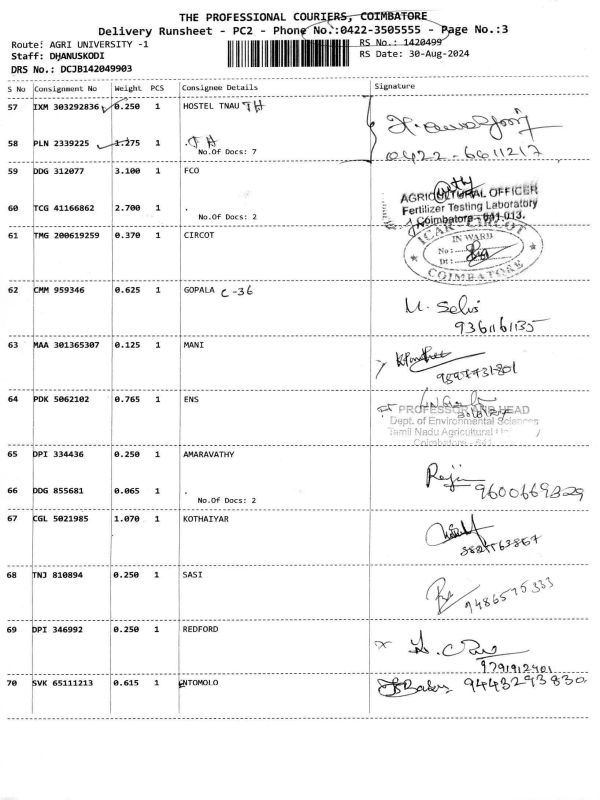 THE PROFESSIONAL COURIERS, COIMBATORE
Delivery Runsheet - PC2 - Phone No.:0422-3505555 - Page No.:3
Route: AGRI UNIVERSITY -1 RS No.: 1420499
Staff: DHANUSKODI RS Date: 30-Aug-2024
DRS No.: DCJB142049903
S No Consignment No Weight PCS Consignee Details Signature
57 IXM 303292836 0.250 1 HOSTEL TNAU TH
58 PLN 2339225 1.275 1 . TH
No.Of Docs: 7
0422-6611217
59 DDG 312077 3.100 1 FCO
AGRICULTURAL OFFICER
Fertilizer Testing Laboratory
60 TCG 41166862 2.700 1 .
No.Of Docs: 2
Coimbatore - 641 013.
61 TMG 200619259 0.370 1 CIRCOT
ICAR - CIRCOT
IN WARD
No:
Dt:
COIMBATORE
62 CMM 959346 0.625 1 GOPALA C-36
M. Selvi
9361161135
63 MAA 301365307 0.125 1 MANI
64 PDK 5062102 0.765 1 ENS
PROFESSOR AND HEAD
Dept. of Environmental Sciences
Tamil Nadu Agricultural
Coimbatore - 641
65 DPI 334436 0.250 1 AMARAVATHY
66 DDG 855681 0.065 1 .
No.Of Docs: 2
9600669329
67 CGL 5021985 1.070 1 KOTHAIYAR
68 TNJ 810894 0.250 1 SASI
9486575333
69 DPI 346992 0.250 1 REDFORD
9791912401
70 SVK 65111213 0.615 1 ENTOMOLO
9443293830